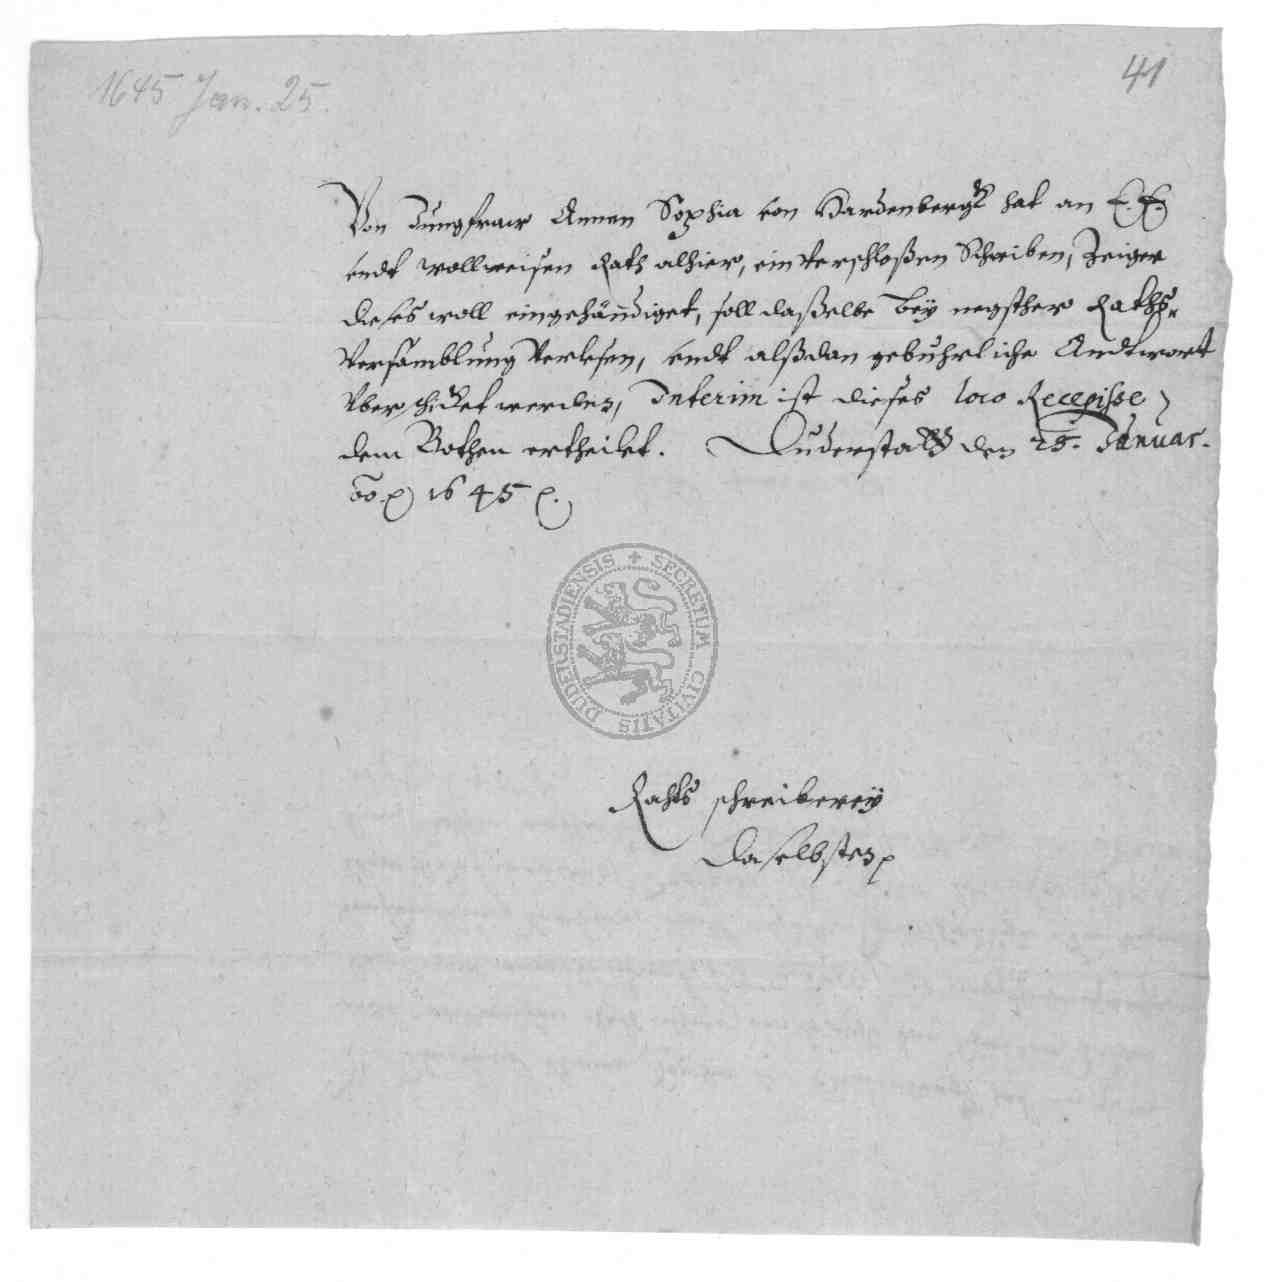 1645 Jan. 25.
41
Von Jungfraw Annen Sophia von Hardenbergk hat an E. E.
undt wollweisen Rath alhier, ein verschloßen Schreiben, Zeiger
dieses woll eingehändiget, soll daßelbe bey negsther Raths-
versamblung verlesen, undt alßdan gebuhrliche Andtwort
vberschicket werden, Interim ist dieses loco Recepisse
dem Bothen ertheilet. Duderstadt den 25. Januar.
1645
SECRETUM CIVITATIS DUDERSTADIENSIS
Rahts schreiberey
daselbsten